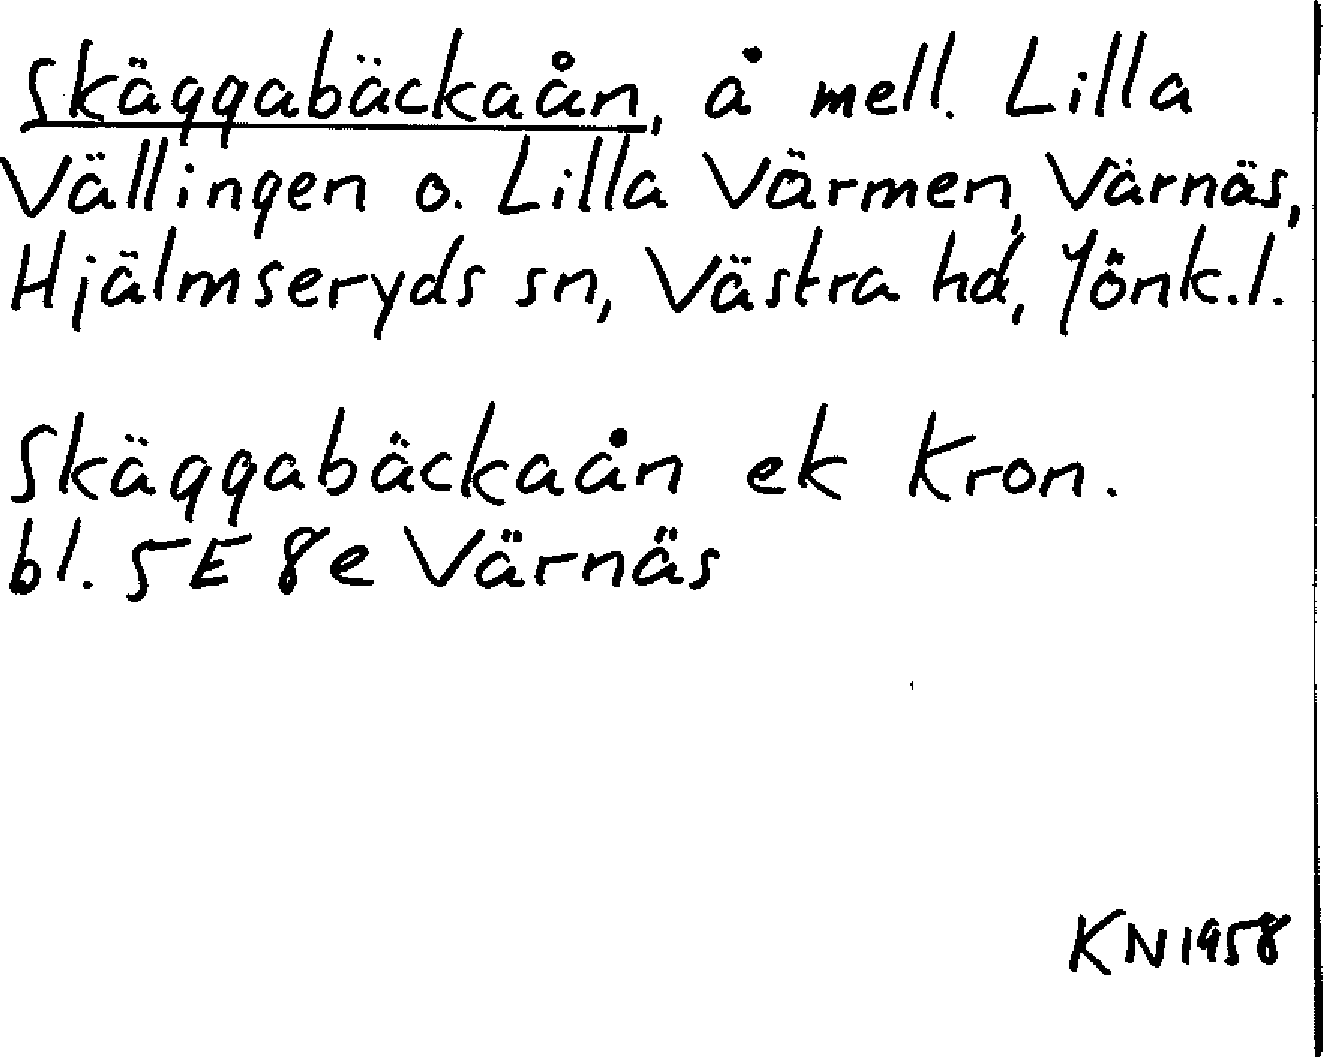 Skäggabäckaån, å mell. Lilla
Vällingen o. Lilla Värmen, Värnäs,
Hjälmseryds sn, Västra hd, Jönk.l.
Skäggabäckaån ek Kron.
bl. 5E 8e Värnäs
KN 1958